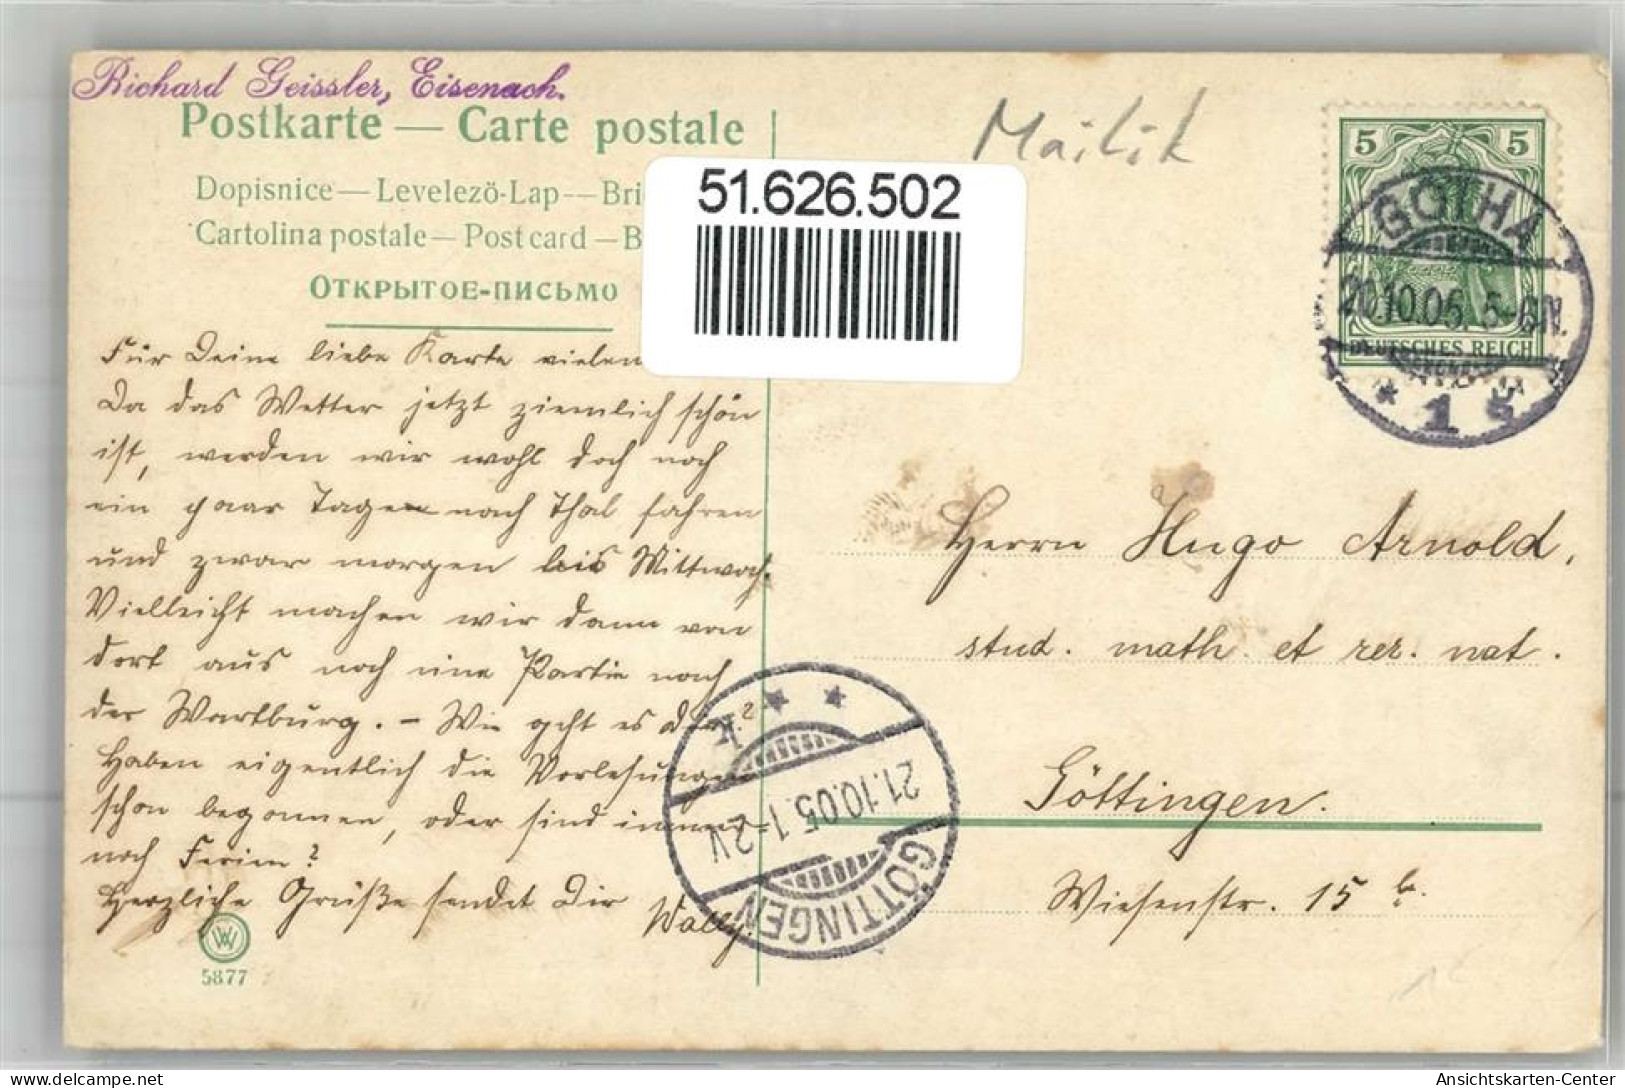 Richard Geissler, Eisenach.
Postkarte — Carte postale
Dopisnice — Levelezö-Lap — Bri
Cartolina postale — Post card — B
ОТКРЫТОЕ-ПИСЬМО
51.626.502
Mailik
5 5
DEUTSCHES REICH
GOTHA
20.10.05. 5-6N.
* 1
Für Deine liebe Karte vielen
Da das Wetter jetzt ziemlich schön
ist, werden wir wohl doch noch
ein paar Tage nach Thal fahren
und zwar morgen bis Mittwoch.
Vielleicht machen wir dann von
dort aus noch eine Partie nach
der Wartburg. – Wie geht es Dir?
Haben eigentlich die Vorlesungen
schon begonnen, oder sind immer
noch Ferien?
Herzliche Grüße sendet Dir Wally.
Herrn Hugo Arnold,
stud. math. et rer. nat.
Göttingen.
Wiesenstr. 15 b.
GÖTTINGEN
21.10.05. 1-2V
* * k
W
5877
delcampe.net
Ansichtskarten-Center